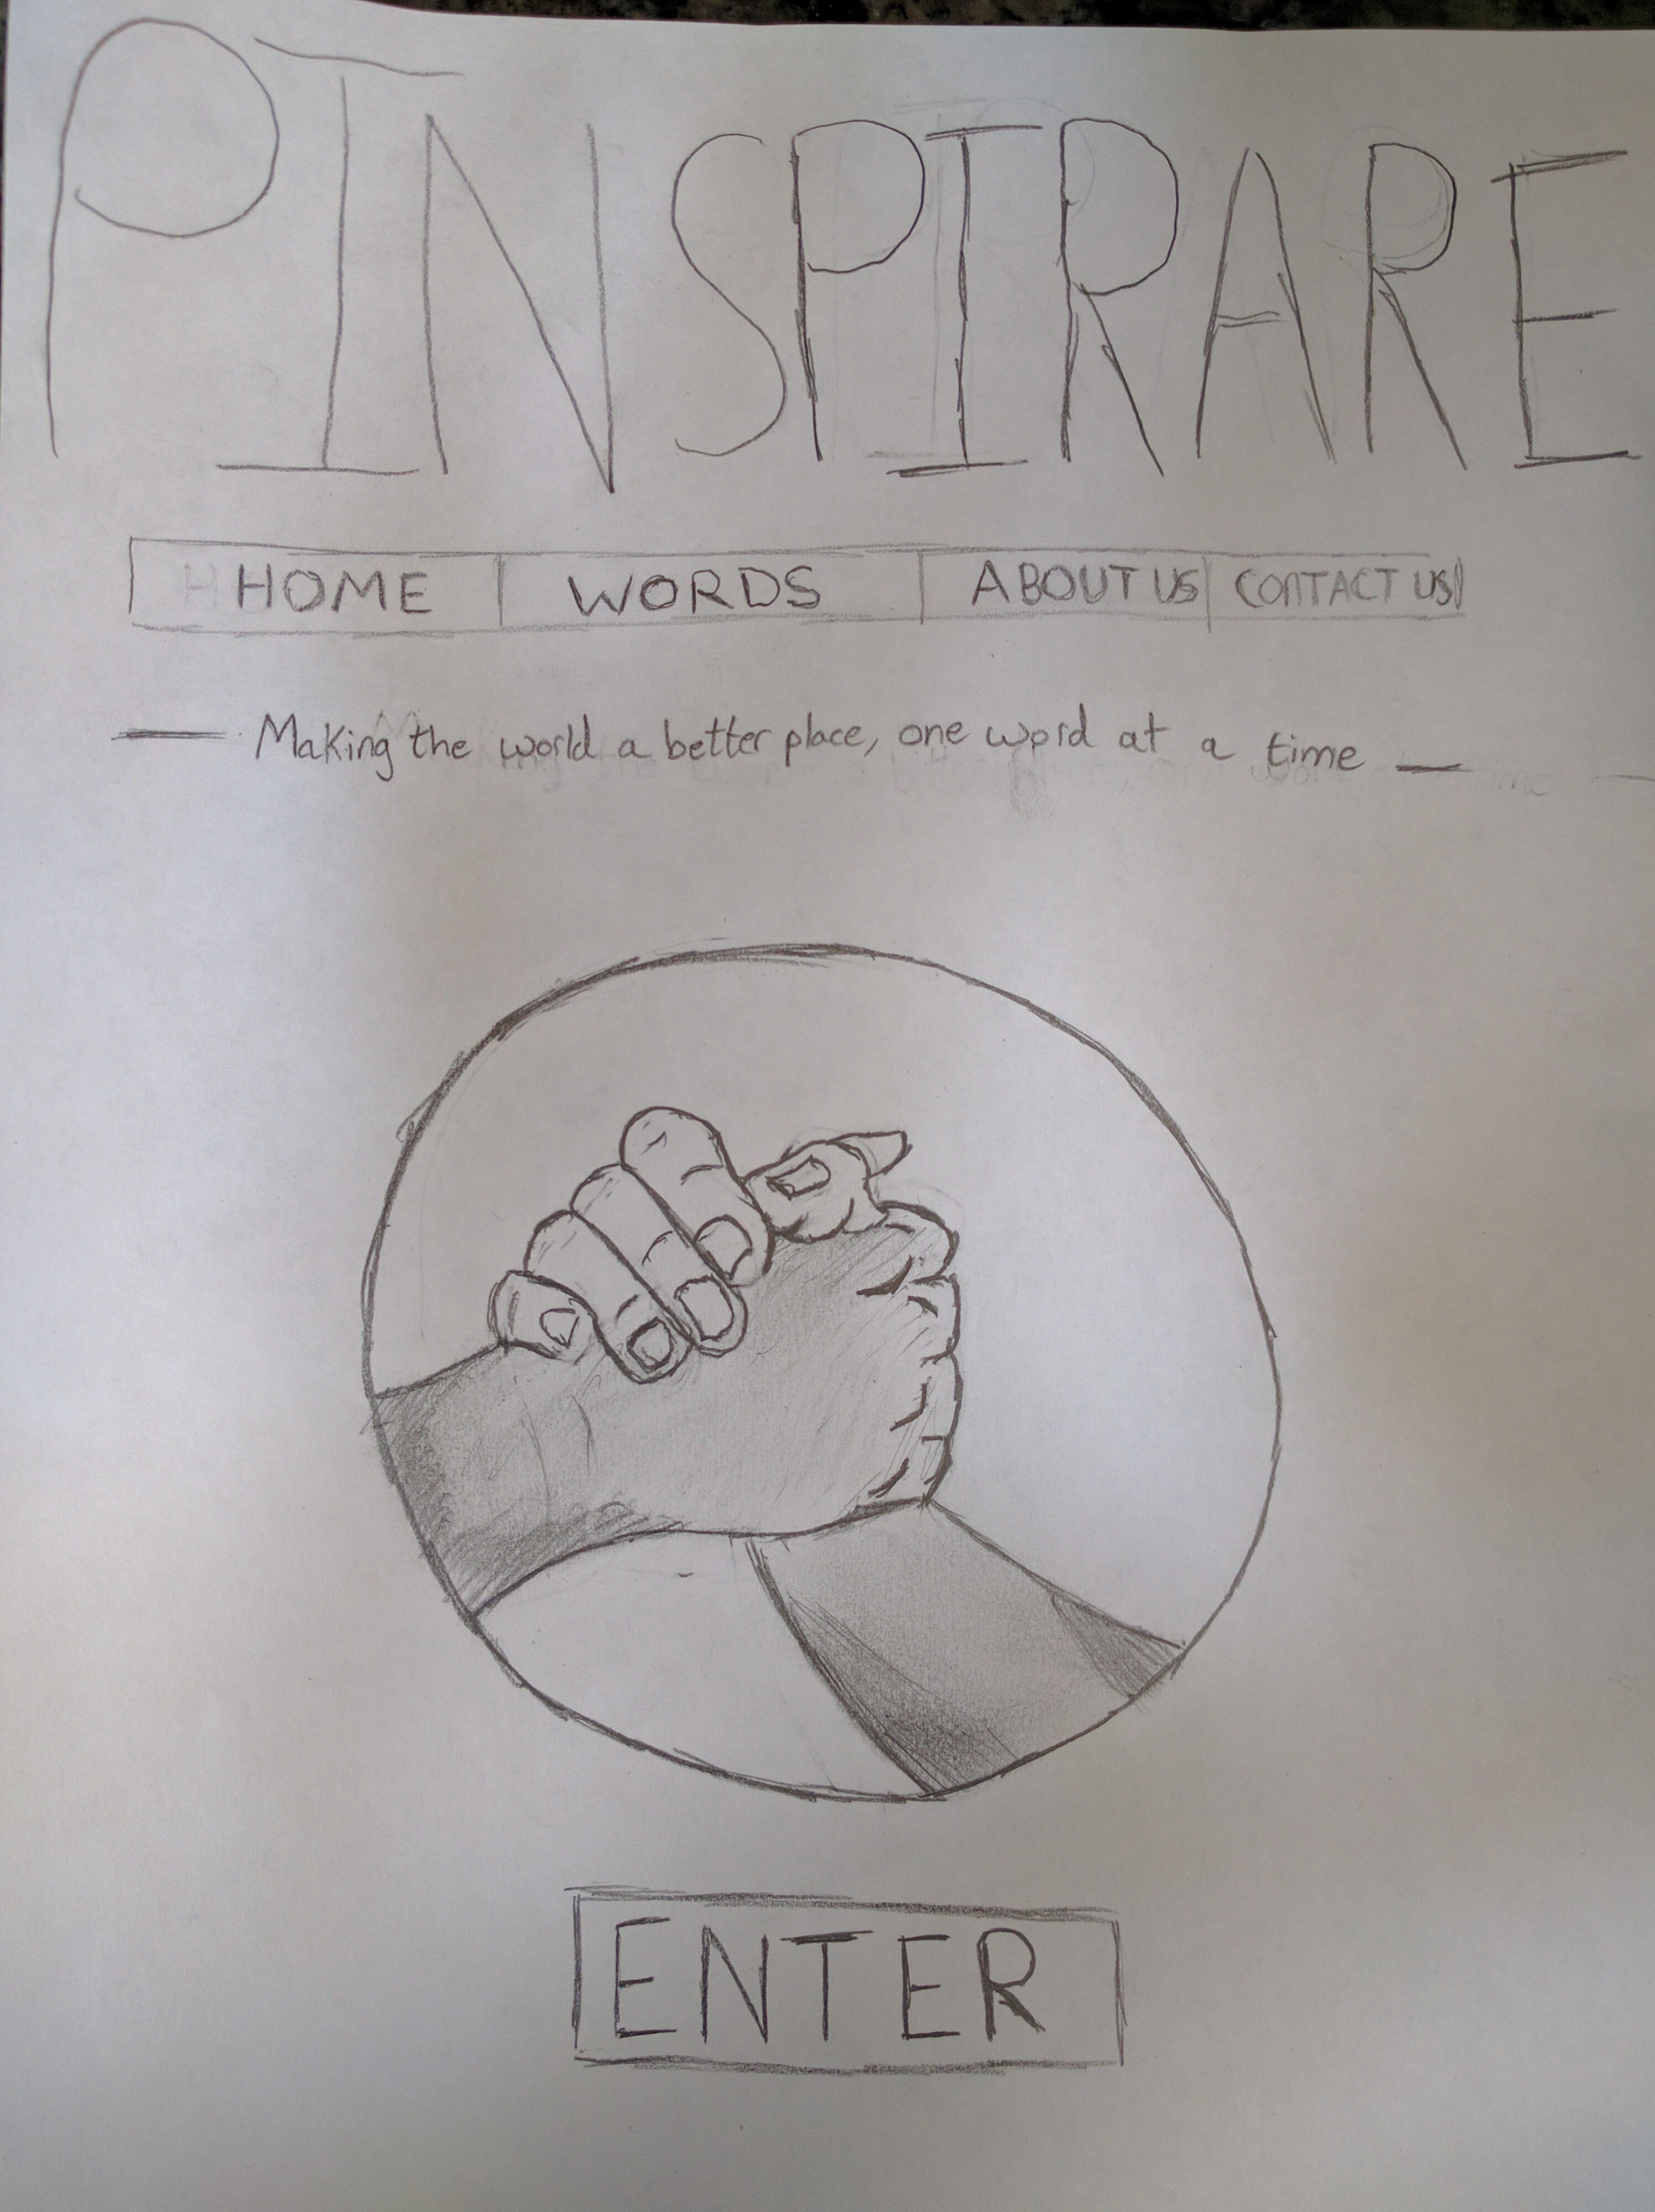 PINSPIRARE
HOME WORDS ABOUT US CONTACT US
— Making the world a better place, one word at a time —
ENTER